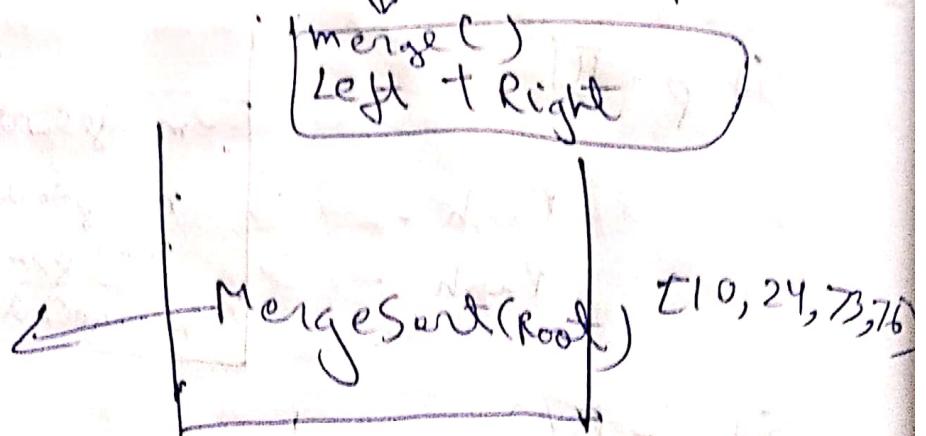 merge()
Left + Right
MergeSort(Root) [10, 24, 73, 76]